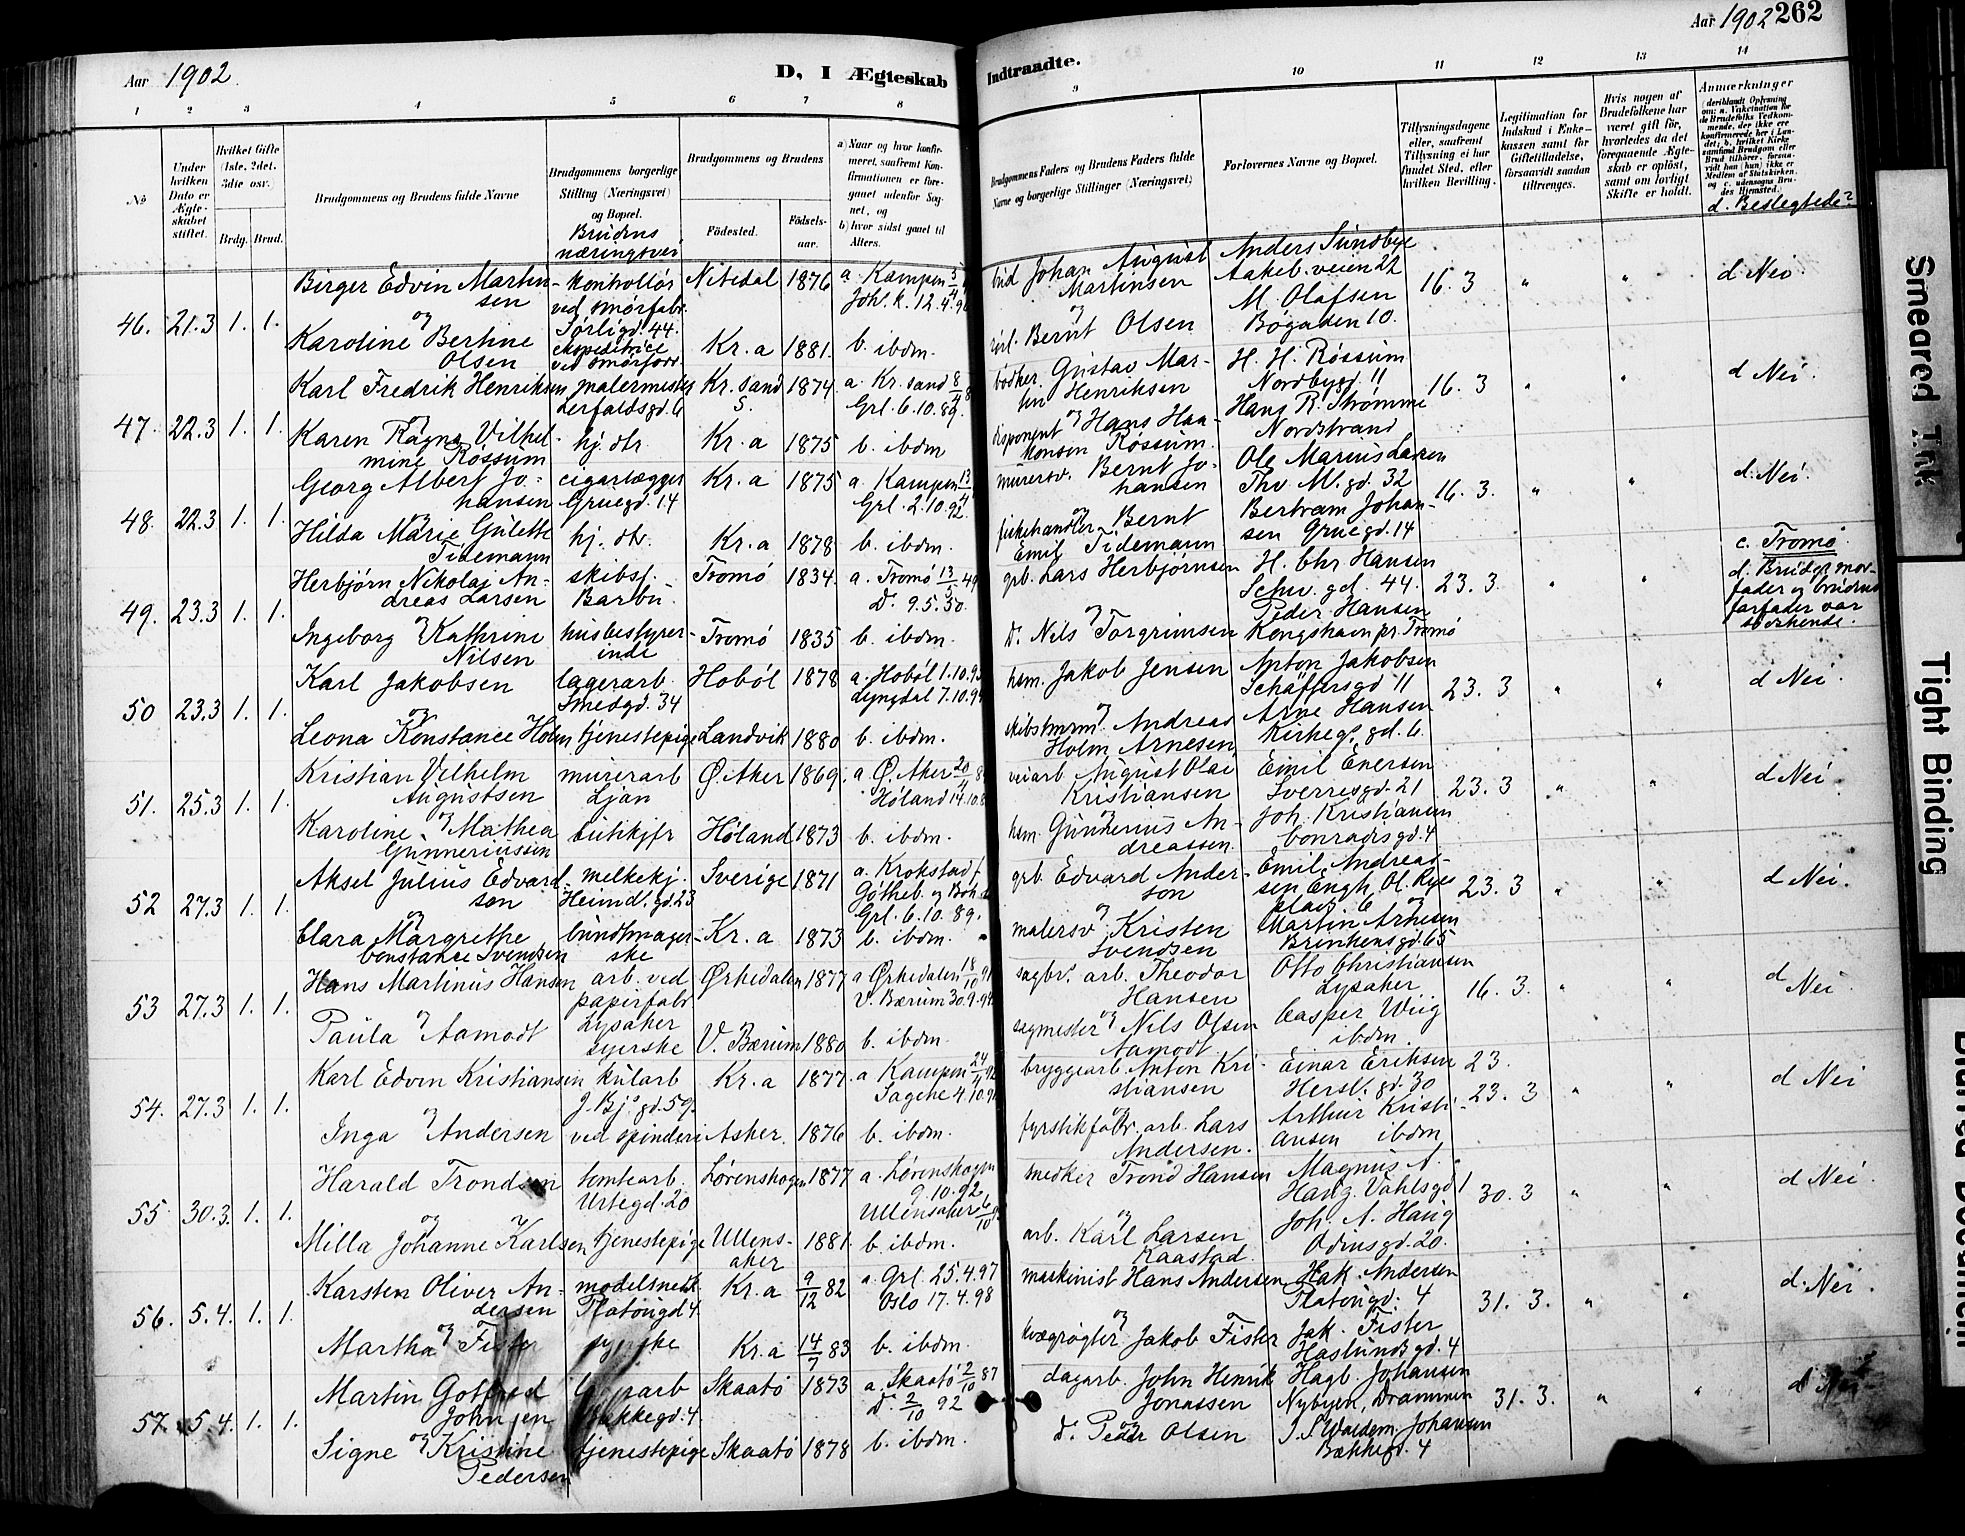 Aar 1902.
D, I Ægteskab Indtraadte.
Aar 1902 262
1 2 3 4 5 6 7 8 9 10 11 12 13 14
No
Under hvilken Dato er Ægteskabet stiftet.
Hvilket Gifte (1ste, 2det, 3die osv.)
Brdg. Brud.
Brudgommens og Brudens fulde Navne
Brudgommens borgerlige Stilling (Næringsvei) og Bopæl.
Brudens næringsvei
Brudgommens og Brudens
Fødested.
Fødselsaar.
a) Naar og hvor konfirmeret, saafremt Konfirmationen er foregaaet udenfor Sognet, og
b) hvor sidst gaaet til Alters.
Brudgommens Faders og Brudens Faders fulde Navne og borgerlige Stillinger (Næringsvei)
Forlovernes Navne og Bopæl.
Tillysningsdagene eller, saafremt Tillysning ei har fundet Sted, efter hvilken Bevilling.
Legitimation for Indskud i Enkekassen samt for Giftetilladelse, forsaavidt saadan tiltrænges.
Hvis nogen af Brudefolkene har været gift før, hvorledes da det foregaaende Ægteskab er opløst, samt om lovligt Skifte er holdt.
Anmærkninger
d. Beslegtede?
46. 21.3 1. 1.
Birger Edvin Martinsen
kontrollør ved smørfabr. Sørligd. 44.
Nitedal 1876
a. Kampen
Joh. k. 12.4.
Johan August Martinsen
Anders Sundbye
Aakeb. veien 22
M. Olafsen
Bøgaden 10.
16. 3 " " d Nei.
og
Karoline Bertine Olsen
Kr. a 1881. b. ibdm.
Bernt Olsen
47. 22.3 1. 1.
Karl Fredrik Henriksen
malermester
Kr. sand S. 1874
a. Kr. sand
Grl. 6.10.89.
bødker Gustav Martin Henriksen
H. H. Røssum
Nordbygd. 11
Hans R. Strømme
Nordstrand
16. 3 " " d Nei.
og
Karen Ragna Vilhelmine Røssum
hj. dtr Kr. a 1875 b. ibdm
disponent Hans Haakonsen Røssum
48. 22.3 1. 1.
Georg Albert Johansen
cigarlægger
Gruegd. 14
Kr. a 1875
a. Kampen 13/4
Grl. 2.10.92.
murersv. Bernt Johansen
Ole Marius Larsen
Thv. M. gd. 32
Bertram Johansen Gruegd. 14
16. 3. " " d. Nei.
og
Hilda Marie Gulette Tidemann
hj. dtr. Kr. a 1878 b. ibdm.
fiskehandler Bernt Emil Tidemann
49. 23.3 1. 1.
Herbjørn Nikolai Andreas Larsen
skibsf. Barbu.
Tromø 1834.
a. Tromø 13/5 49
D. 9.5.50.
grb. Lars Herbjørnsen
H. Chr Hansen
Schw. gd. 44.
Peder Hansen
Kongshavn pr. Tromø
23. 3. " "
c. Tromø.
d. Brudgs morfader og brudens farfader var søskende.
og
Ingeborg Kathrine Nilsen
husbestyrerinde Tromø 1835 b. ibdm.
D. Nils Torgrimsen
50 23.3 1. 1.
Karl Jakobsen
lagerarb.
Smedgd. 34
Hobøl 1878
a. Hobøl 1.10.93
Lyngdal 7.10.94
hsm. Jakob Jensen
Anton Jakobsen
Schäffersgd 11
Arne Hansen
Kirkeg. gd. 6.
23. 3 " " d Nei.
og
Leona Konstance Holm
tjenestepige Landvik 1880 b. ibdm.
skibstmrm. Andreas Holm Arnesen
51. 25.3 1. 1.
Kristian Vilhelm Augustsen
murerarb
Ljan
Ø. Aker 1869.
a. Ø. Aker 20/4
Høland 14.10.
veiarb August Olai Kristiansen
Emil Enersen
Sverresgd. 21
Joh. Kristiansen
Conradisgd. 4
23. 3 " " d Nei.
og
Karoline Mathea Gunneriussen
butikjfr Høland 1873 b. ibdm.
hsm. Gunnerius Andreassen
52 27.3 1. 1.
Aksel Julius Edvardson
melkekj.
Heimd. gd. 23
Sverige 1871
a. Krokstad f
Gøtheb. og Boh.
Grl. 6.10.89.
grb. Edvard Anderson
Emil Andreassen Engh, Ol. Ryes plads 6
Martin Arnesen
Brinkens gd. 65
23. 3 " " d Nei.
og
Clara Margrethe Constance Svendsen
buntmagerske Kr. a 1873 b. ibdm.
malersv Kristen Svendsen
53 27.3 1. 1.
Hans Martinus Hansen
arb. ved papirfabr
Lysaker
Ørkedalen 1877
a Ørkedalen 18/10 91
V. Bærum 30.9.94.
sagbr. arb. Theodor Hansen
Otto Christiansen
Lysaker
Casper Wiig
ibdm.
16. 3. " " d Nei.
og
Paula Aamodt
syerske V. Bærum 1880 b. ibdm.
sagmester Nils Olsen Aamodt
54. 27.3 1. 1.
Karl Edvin Kristiansen
kularb
J. Bj. gd. 59.
Kr. a 1877.
a Kampen 24/4 92
Sagene 4.10.9
bryggearb. Anton Kristiansen
Einar Eriksen
Hersl. gd. 30
Arthur Kristiansen ibdm
23.
23. 3 " " d Nei
og
Inga Andersen
ved spinderi Asker. 1876 b. ibdm.
fyrstikfabr. arb. Lars Andersen.
55 30.3. 1. 1.
Harald Trondsen
tomtearb.
Urtegd. 20
Lørenskogen 1877
a. Lørenskogen
9.10.92
Ullensaker 6/10
snedker Trond Hansen
Magnus A.
Hanz. Vahlsgd 1
Joh. A. Haug
Odinsgd. 20.
30. 3 " " d Nei.
og
Milla Johanne Karlsen
tjenestepige Ullensaker 1881. b. ibdm.
arb. Karl Larsen Kaastad.
56. 5.4. 1. 1.
Karsten Oliver Andersen
modelsnedk
Platougd. 4
Kr. a 9/12 82
a. Grl. 25.4.97
Oslo 17.4.98
maskinist Hans Andersen
Hak. Andersen
Platougd. 4
Jak. Fister
Haslundsgd. 4
31. 3. " " d. Nei.
og
Martha Fister
Kr. a 14/7 83 b. ibdm.
kvægrøgter Jakob Fister
57. 5.4. 1. 1.
Martin Gotfred Johnsen
Bakkegd. 4
Skaatø 1873
a. Skaatø 2/10 87
D. 2/10 92
dagarb. John Henrik Jonassen
Hagb. Johansen
Nybyen, Drammen
J. S. Waldem. Johansen
Bakkegd. 4
31. 3. " " d Nei
og
Signe Kristine Pedersen
tjenestepige Skaatø 1878 b. ibdm.
D. Peder Olsen
Smeared Ink
Tight Binding